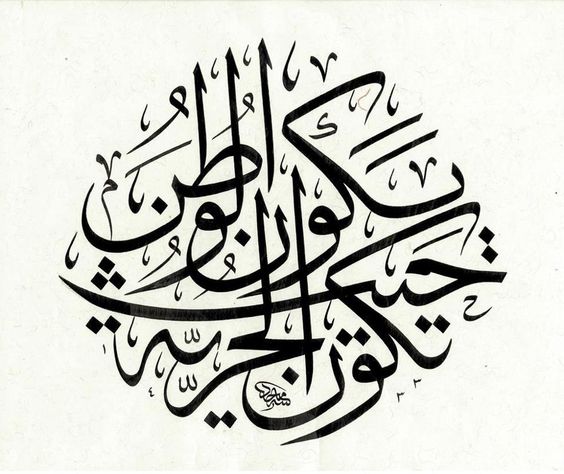 حيث تكون الحرية
يكون الوطن
١٤٣٣